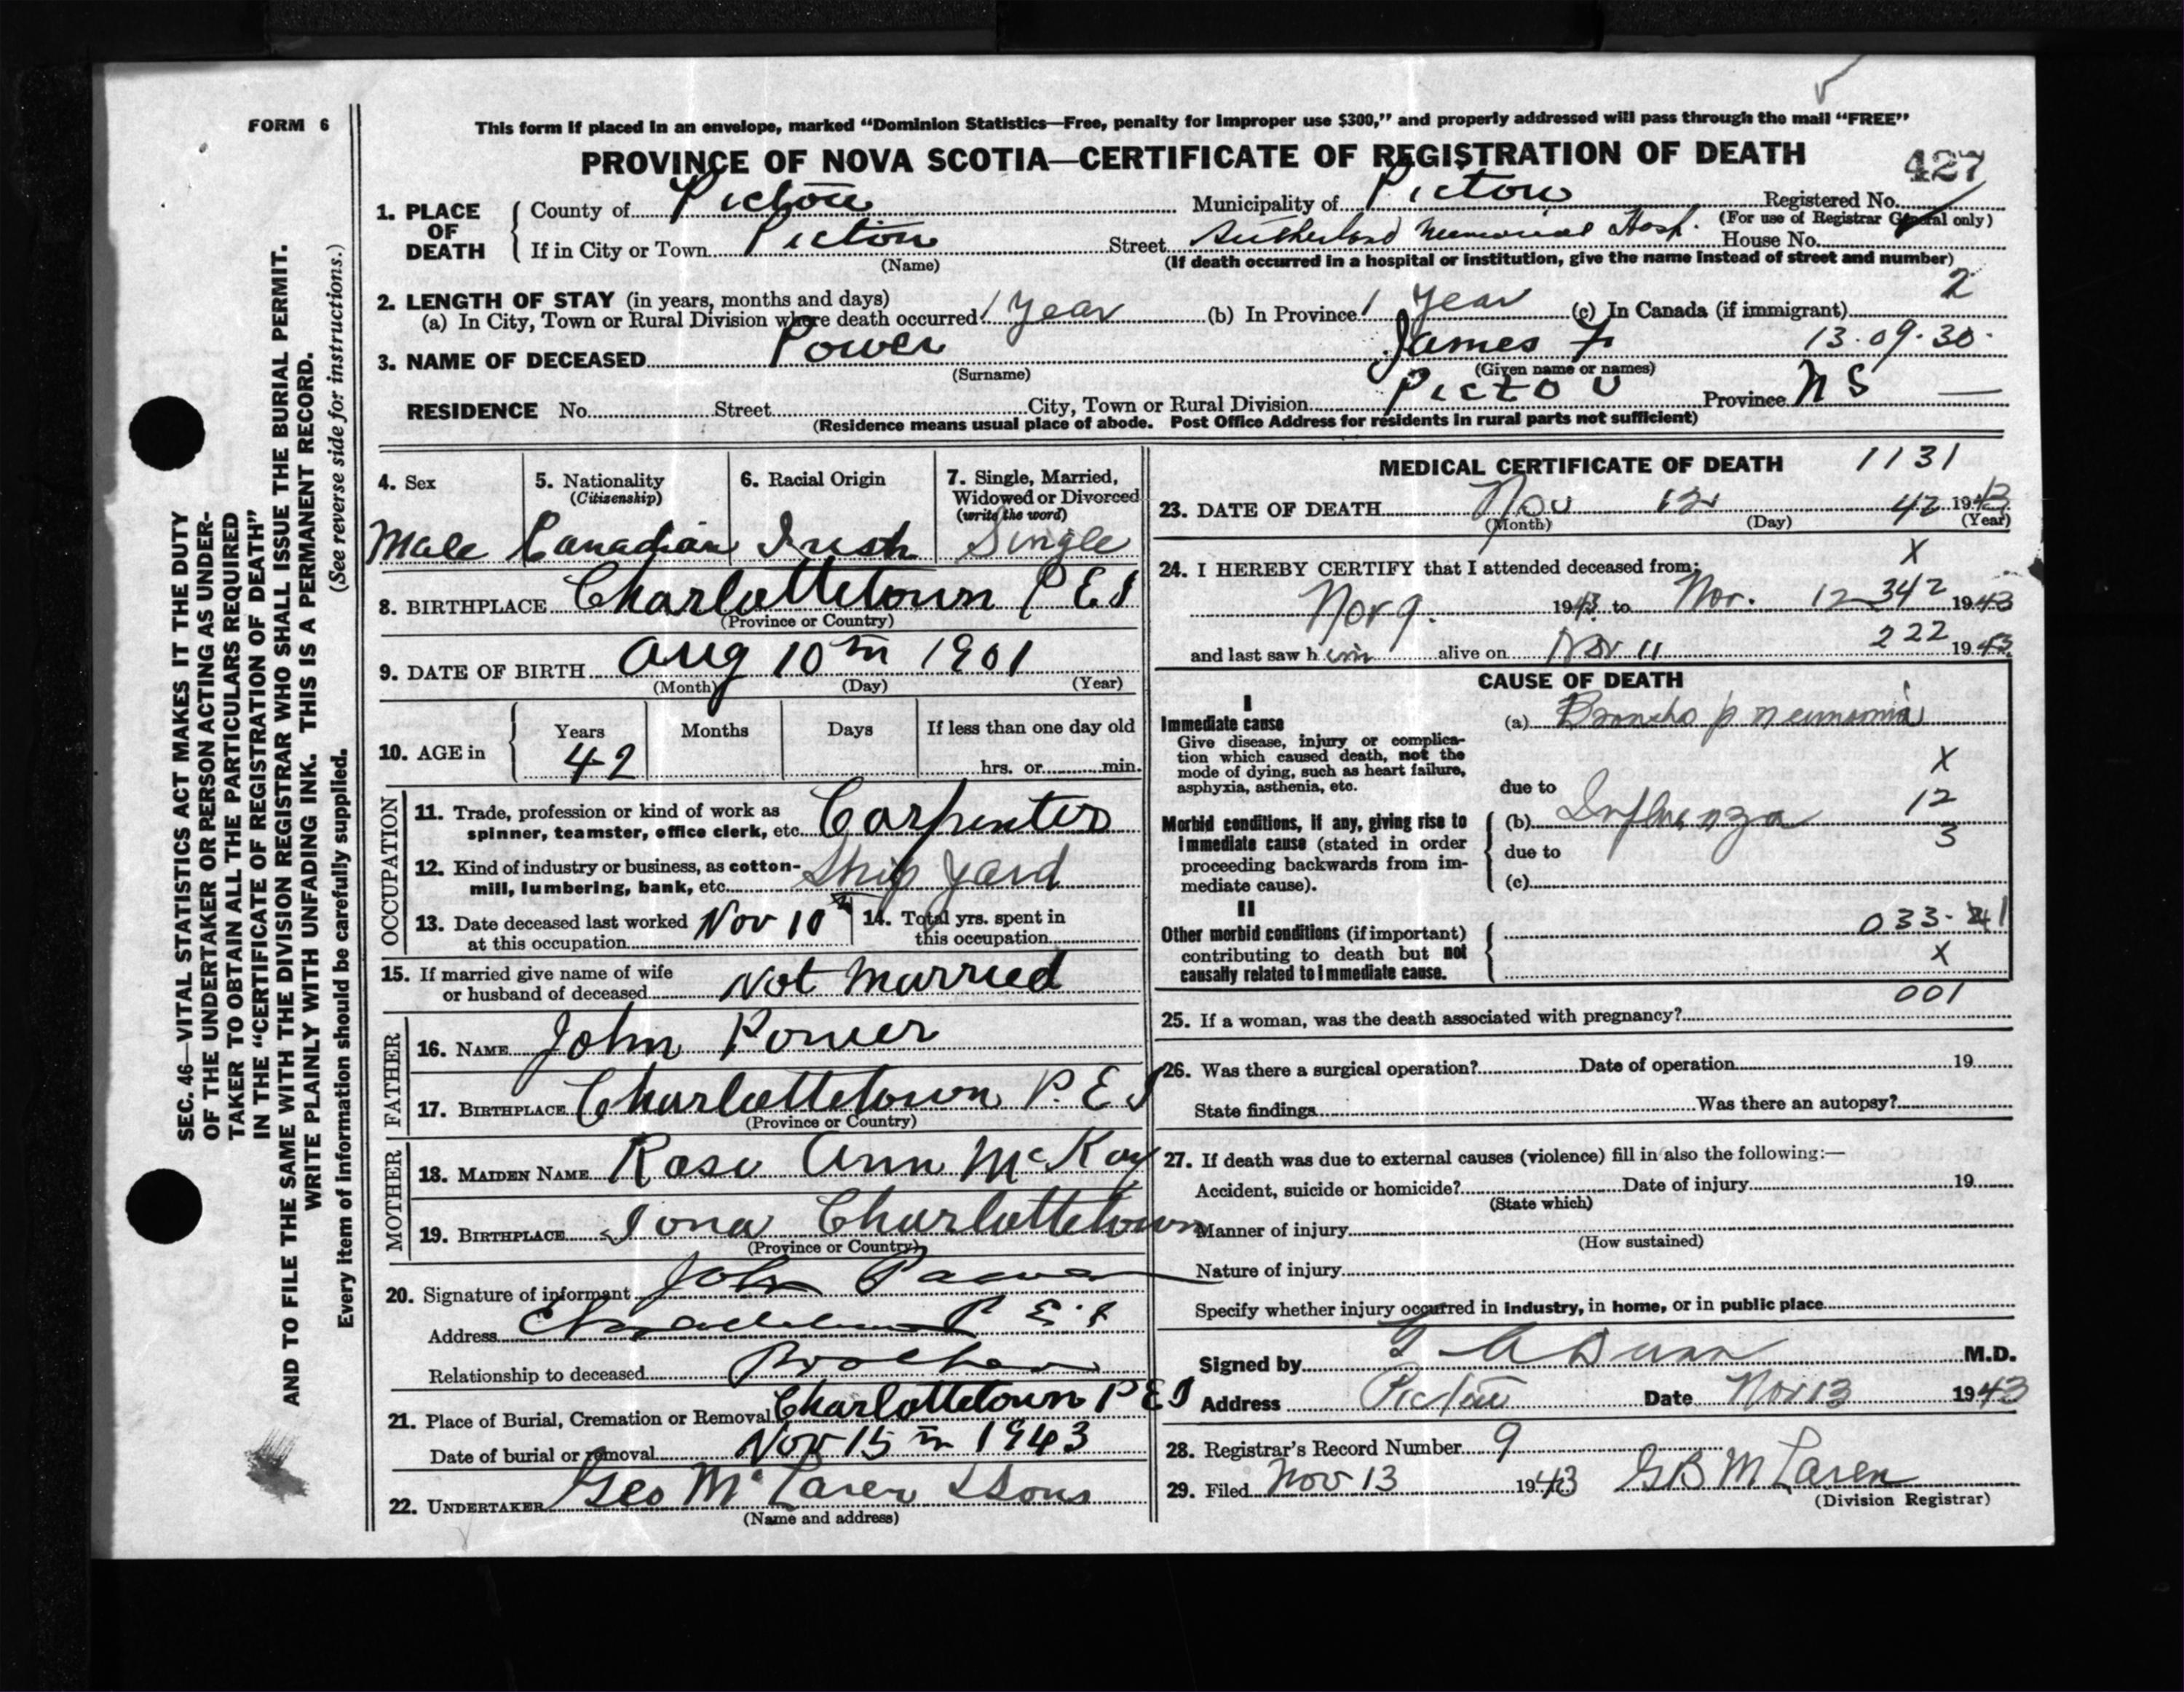 FORM 6
This form if placed in an envelope, marked "Dominion Statistics—Free, penalty for improper use $300," and properly addressed will pass through the mail "FREE"
PROVINCE OF NOVA SCOTIA—CERTIFICATE OF REGISTRATION OF DEATH
427
1. PLACE OF DEATH
County of Pictou Municipality of Pictou Registered No.
(For use of Registrar General only)
If in City or Town Pictou Street Sutherland Memorial Hosp. House No.
(Name) (If death occurred in a hospital or institution, give the name instead of street and number)
2. LENGTH OF STAY (in years, months and days) 2
(a) In City, Town or Rural Division where death occurred 1 year (b) In Province 1 year (c) In Canada (if immigrant)
3. NAME OF DECEASED Power James F 13.09.30.
(Surname) (Given name or names)
RESIDENCE No. Street City, Town or Rural Division Pictou Province N S —
(Residence means usual place of abode. Post Office Address for residents in rural parts not sufficient)
4. Sex 5. Nationality (Citizenship) 6. Racial Origin 7. Single, Married, Widowed or Divorced (write the word)
Male Canadian Irish Single
8. BIRTHPLACE Charlottetown P E I
(Province or Country)
9. DATE OF BIRTH Aug 10th 1901
(Month) (Day) (Year)
10. AGE in Years Months Days If less than one day old
42 hrs. or min.
OCCUPATION
11. Trade, profession or kind of work as
spinner, teamster, office clerk, etc. Carpenter
12. Kind of industry or business, as cotton-
mill, lumbering, bank, etc. Ship yard
13. Date deceased last worked at this occupation Nov 10th 14. Total yrs. spent in this occupation
15. If married give name of wife
or husband of deceased Not Married
FATHER
16. NAME John Power
17. BIRTHPLACE Charlottetown P. E I
(Province or Country)
MOTHER
18. MAIDEN NAME Rose Ann McKay
19. BIRTHPLACE Iona Charlottetown
(Province or Country)
20. Signature of informant John Power
Address Charlottetown P E I
Relationship to deceased Brother
21. Place of Burial, Cremation or Removal Charlottetown P E I
Date of burial or removal Nov 15th 1943
22. UNDERTAKER Geo McLaren & Sons
(Name and address)
MEDICAL CERTIFICATE OF DEATH 1131
23. DATE OF DEATH Nov 12 42 1943
(Month) (Day) (Year)
X
24. I HEREBY CERTIFY that I attended deceased from:
Nov 9. 1943 to Nov. 12 342 1943
222
and last saw him alive on Nov 11 1943
CAUSE OF DEATH
I
Immediate cause (a) Broncho pneumonia
Give disease, injury or complica-
tion which caused death, not the
mode of dying, such as heart failure,
asphyxia, asthenia, etc.
X
due to
12
Morbid conditions, if any, giving rise to (b) Influenza
3
immediate cause (stated in order due to
proceeding backwards from im-
mediate cause). (c)
II
Other morbid conditions (if important) 033-
contributing to death but not X
causally related to immediate cause.
001
25. If a woman, was the death associated with pregnancy?
26. Was there a surgical operation? Date of operation 19
State findings Was there an autopsy?
27. If death was due to external causes (violence) fill in also the following:—
Accident, suicide or homicide? Date of injury 19
(State which)
Manner of injury
(How sustained)
Nature of injury
Specify whether injury occurred in industry, in home, or in public place
Signed by G A Dunn M.D.
Address Pictou Date Nov 13 1943
28. Registrar's Record Number 9
29. Filed Nov 13 1943 G B McLaren
(Division Registrar)
SEC. 46—VITAL STATISTICS ACT MAKES IT THE DUTY
OF THE UNDERTAKER OR PERSON ACTING AS UNDER-
TAKER TO OBTAIN ALL THE PARTICULARS REQUIRED
IN THE "CERTIFICATE OF REGISTRATION OF DEATH"
AND TO FILE THE SAME WITH THE DIVISION REGISTRAR WHO SHALL ISSUE THE BURIAL PERMIT.
WRITE PLAINLY WITH UNFADING INK. THIS IS A PERMANENT RECORD.
(See reverse side for instructions.)
Every item of information should be carefully supplied.